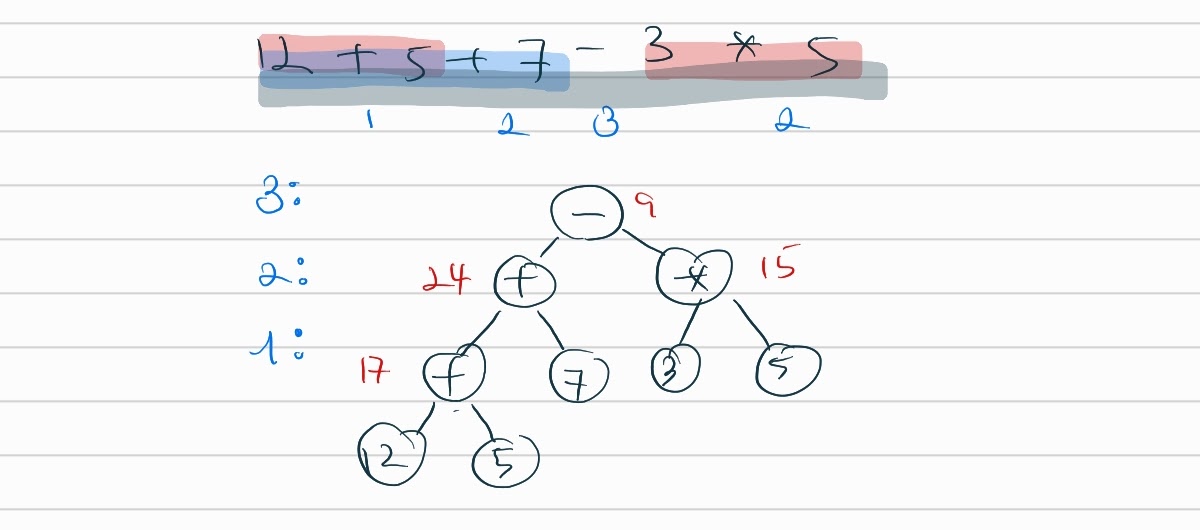 12 + 5 + 7 - 3 * 5
1 2 3 2
3: - 9
2: 24 + * 15
1: 17 + 7 3 5
12 5